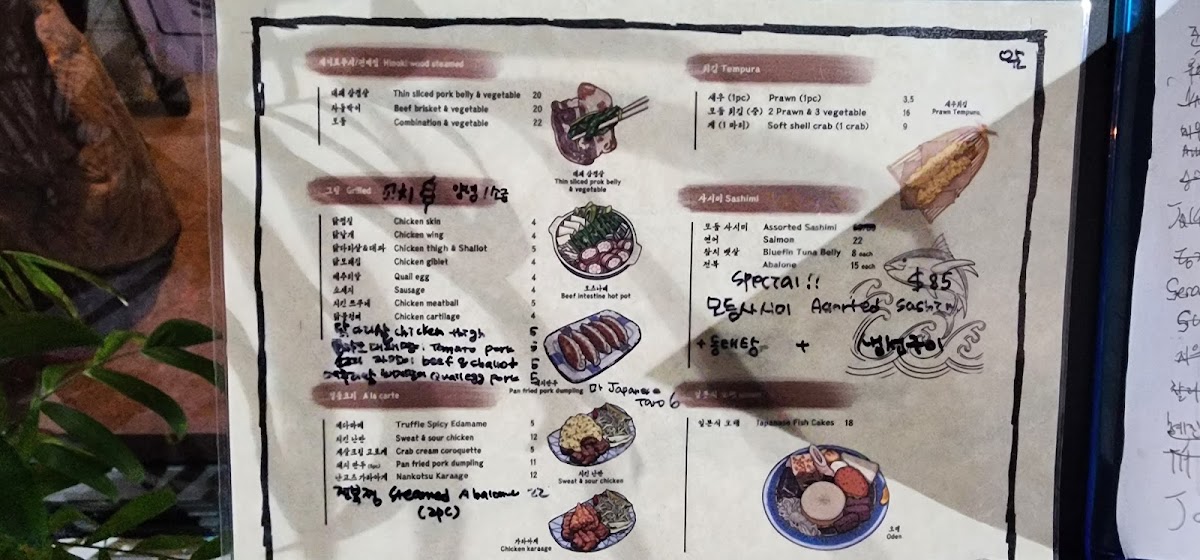 Hinoki wood steamed
대패 삼겹살 Thin sliced pork belly & vegetable 20
차돌박이 Beef brisket & vegetable 20
모듬 Combination & vegetable 22
대패 삼겹살
Thin sliced prok belly
& vegetable
그릴 Grilled 꼬치 양념/소금
닭껍질 Chicken skin 4
닭날개 Chicken wing 4
닭다리살&대파 Chicken thigh & Shallot 5
닭모래집 Chicken giblet 4
메추리알 Quail egg 4
소세지 Sausage 4
치킨 쯔쿠네 Chicken meatball 5
닭물렁뼈 Chicken cartilage 4
닭다리살 chicken thigh 5
Tomato pork
beef & shallot
Quail egg pork 5
모츠나베
Beef intestine hot pot
Pan fried pork dumpling
마 Japanese
Taro 6
일품요리 A la carte
에다마메 Truffle Spicy Edamame 5
치킨 난반 Sweat & sour chicken 12
게살크림 고로케 Crab cream coroquette 5
돼지 만두 Pan fried pork dumpling 11
난고츠가라아게 Nankotsu Karaage 12
전복찜 Steamed Abalone
(2pc)
치킨 난반
Sweat & sour chicken
가라아게
Chicken karaage
튀김 Tempura
새우 (1pc) Prawn (1pc) 3.5
모듬 튀김 (중) 2 Prawn & 3 vegetable 16
게 (1 마리) Soft shell crab (1 crab) 9
새우튀김
Prawn Tempura
사시미 Sashimi
모듬 사시미 Assorted Sashimi
연어 Salmon 22
참치 뱃살 Bluefin Tuna Belly 8 each
전복 Abalone 15 each
Special!! $85
모둠사시미 Assorted Sashimi
+ 동태탕 +
일본식 오뎅 Japanese Fish Cakes 18
오뎅
Oden